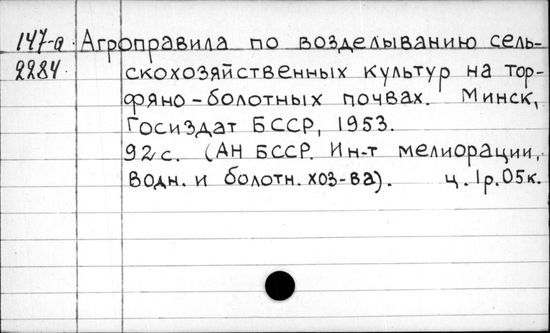 147-а Агроправила по возделыванию сель-
2284 скохозяйственных культур на тор-
фяно-болотных почвах. Минск,
Госиздат БССР, 1953.
92с. (АН БССР. Ин-т мелиорации,
водн. и болотн. хоз-ва). ц. 1р.05к.